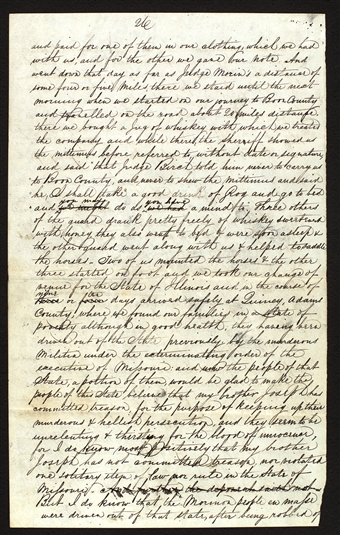 26
and paid for one of them in our clothing, which we had
with us, and for the other we gave our note. And
went down that day as far as Judge Morin's a distance of
some four or five Miles there we staid until the next
morning when we started on our journey to Boon County
and travelled on the road about 20 miles distance
there we bought a jug of whiskey with which we treated
the company and while there the sherriff showed us
the mittimus before refered to, without date or signature
and said that Judge Birch told him never to carry us
to Boon County, and never to show the mittimus and said
he I shall take a good drink of Grog and go to bed
and you may do as you have a mind to, three others
of the guard drank pretty freely of whiskey sweetened
with honey, they also went to bed & were soon asleep &
the other guard went along with us & helped to saddle
the horses. Two of us mounted the horses & the other
three started on foot and we took our change of
venue for the State of Illinois and in the course of
nine or ten days arrived safely at Quincy, Adams
County, where we found our families in a State of
poverty although in good health, they having been
driven out of the State previously by the murderous
Militia under the exterminating order of the
executive of Missouri and now the people of that
State, a portion of them would be glad to make the
people of this State believe that my brother Joseph has
committed treason, for the purpose of keeping up their
murderous & hellish persecution, and they seem to be
unrelenting & thirsting for the blood of innocence
for I do know most positively that my brother
Joseph has not committed treason nor violated
one solitary item of law nor rule in the State of
Missouri.
But I do know that the Mormon people en masse
were driven out of that State, after being robbed of